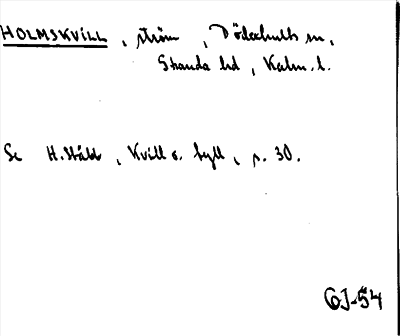 HOLMSKVILL, ström, Döderhults sn,
Stranda hd, Kalm. l.
Se H. Ståhl, Kvill o. hyll, s. 30.
GJ-54